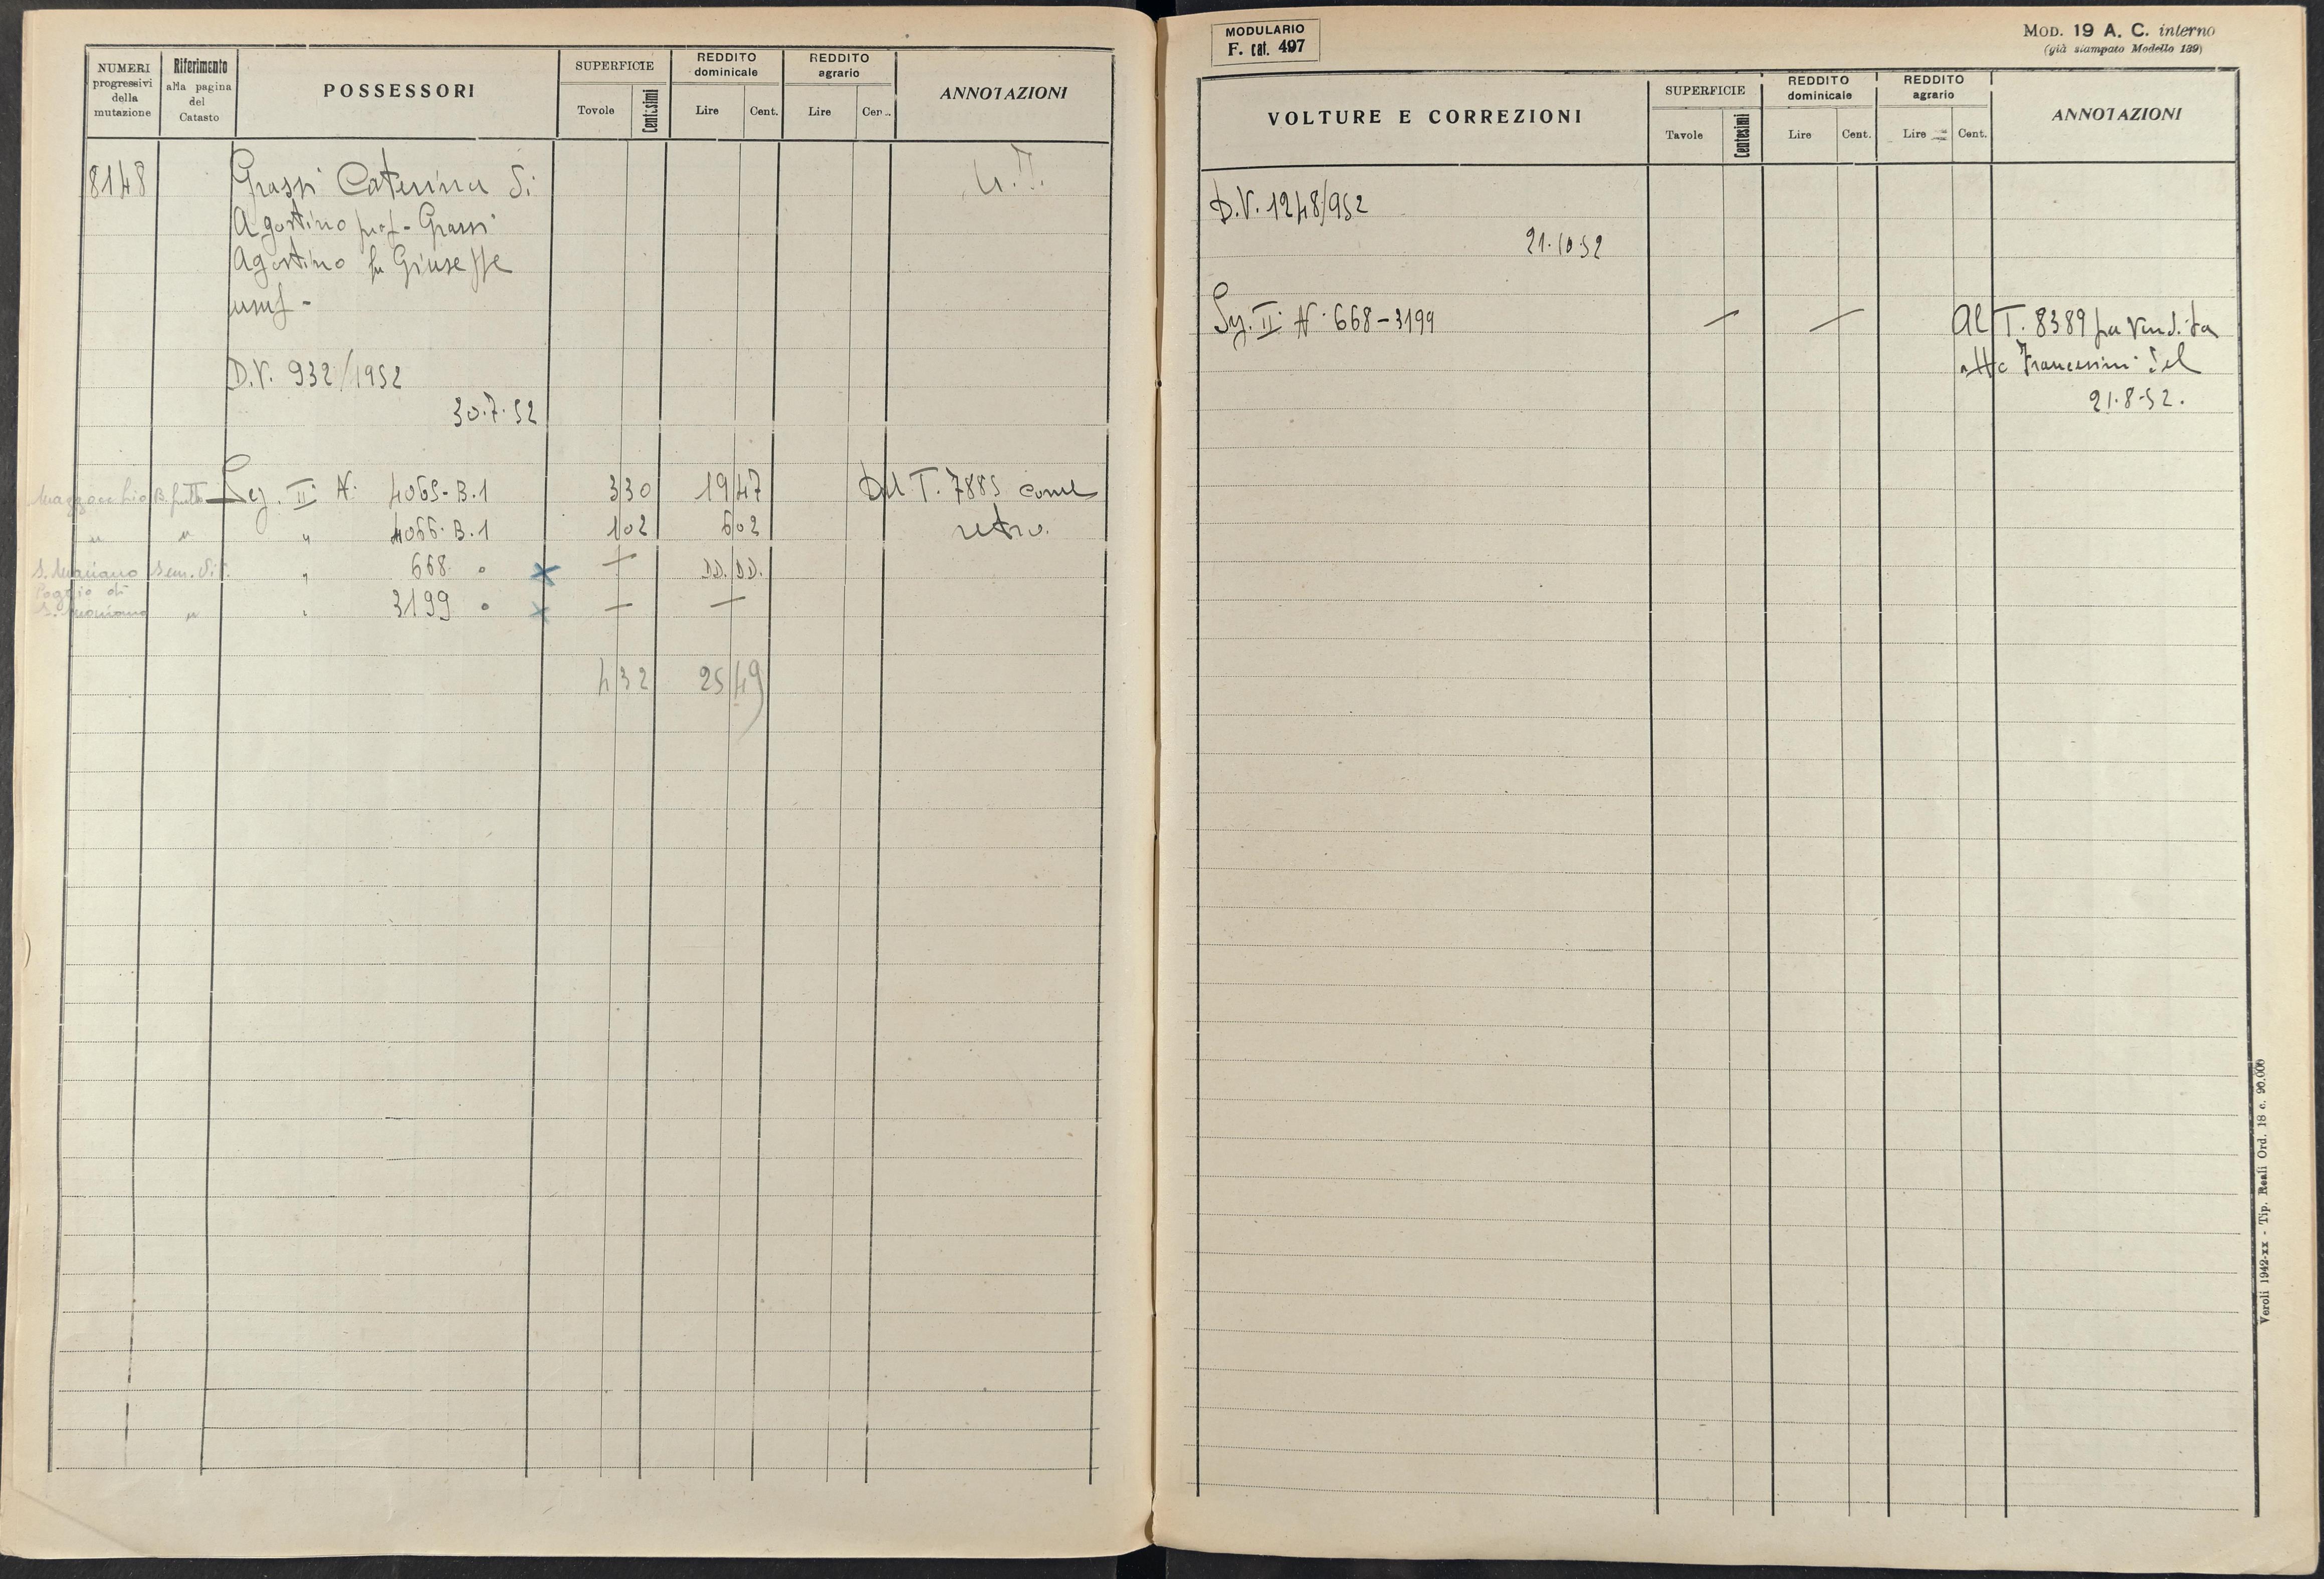 NUMERI progressivi della mutazione
Riferimento alla pagina del Catasto
POSSESSORI
SUPERFICIE
Tavole
Centesimi
REDDITO dominicale
Lire
Cent.
REDDITO agrario
Lire
Cen..
ANNOTAZIONI
8148
Grassi Caterina di
Agostino prop - Grassi
Agostino fu Giuseppe
usuf -
D.V. 932/1952
30.7.52
Sez. II N. 4065-B.1 3 30 19 47 Dal T. 7885 come
" " " 4066-B.1 1 02 6 02 retro.
S. Mariano Sem. Vit. " 668 ° — DD. DD.
Poggio di
S. Mariano " " 3199 ° — —
4 32 25 49
MODULARIO
F. cat. 497
MOD. 19 A. C. interno
(già stampato Modello 189)
VOLTURE E CORREZIONI
SUPERFICIE
Tavole
Centesimi
REDDITO dominicale
Lire
Cent.
REDDITO agrario
Lire
Cent.
ANNOTAZIONI
D.V. 1248/952
21.10.52
Sez. II N. 668-3199 — — Al T. 8389 per vendita
atto Francesini del
21.8-52.
Veroli 1942-XX - Tip. Reali Ord. 18 c. 90.000